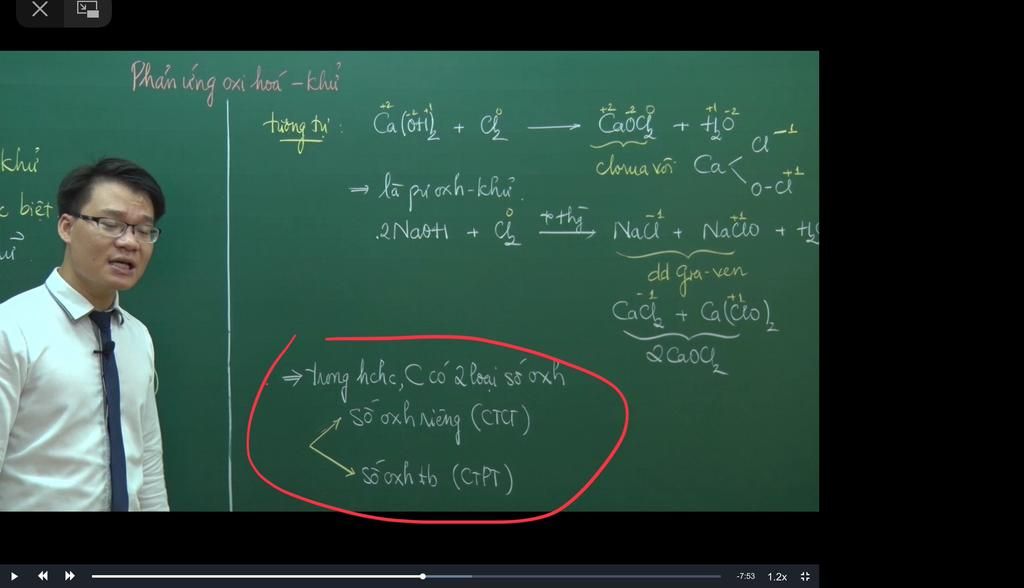 Phản ứng oxi hoá - khử
khử
c biệt
ử.
tương tự :
+2 -2 +1 0 +2 -2 0 +1 -2
Ca(OH)2 + Cl2 → CaOCl2 + H2O
clorua vôi
Ca
Cl -1
O-Cl +1
⇒ là pư oxh-khử.
0 tothg -1 +1
2NaOH + Cl2 → NaCl + NaClO + H2O
dd gia-ven
-1 +1
CaCl2 + Ca(ClO)2
2CaOCl2
⇒ trong hchc, C có 2 loại số oxh
số oxh riêng (CTCT)
số oxh tb (CTPT)
-7:53
1.2x